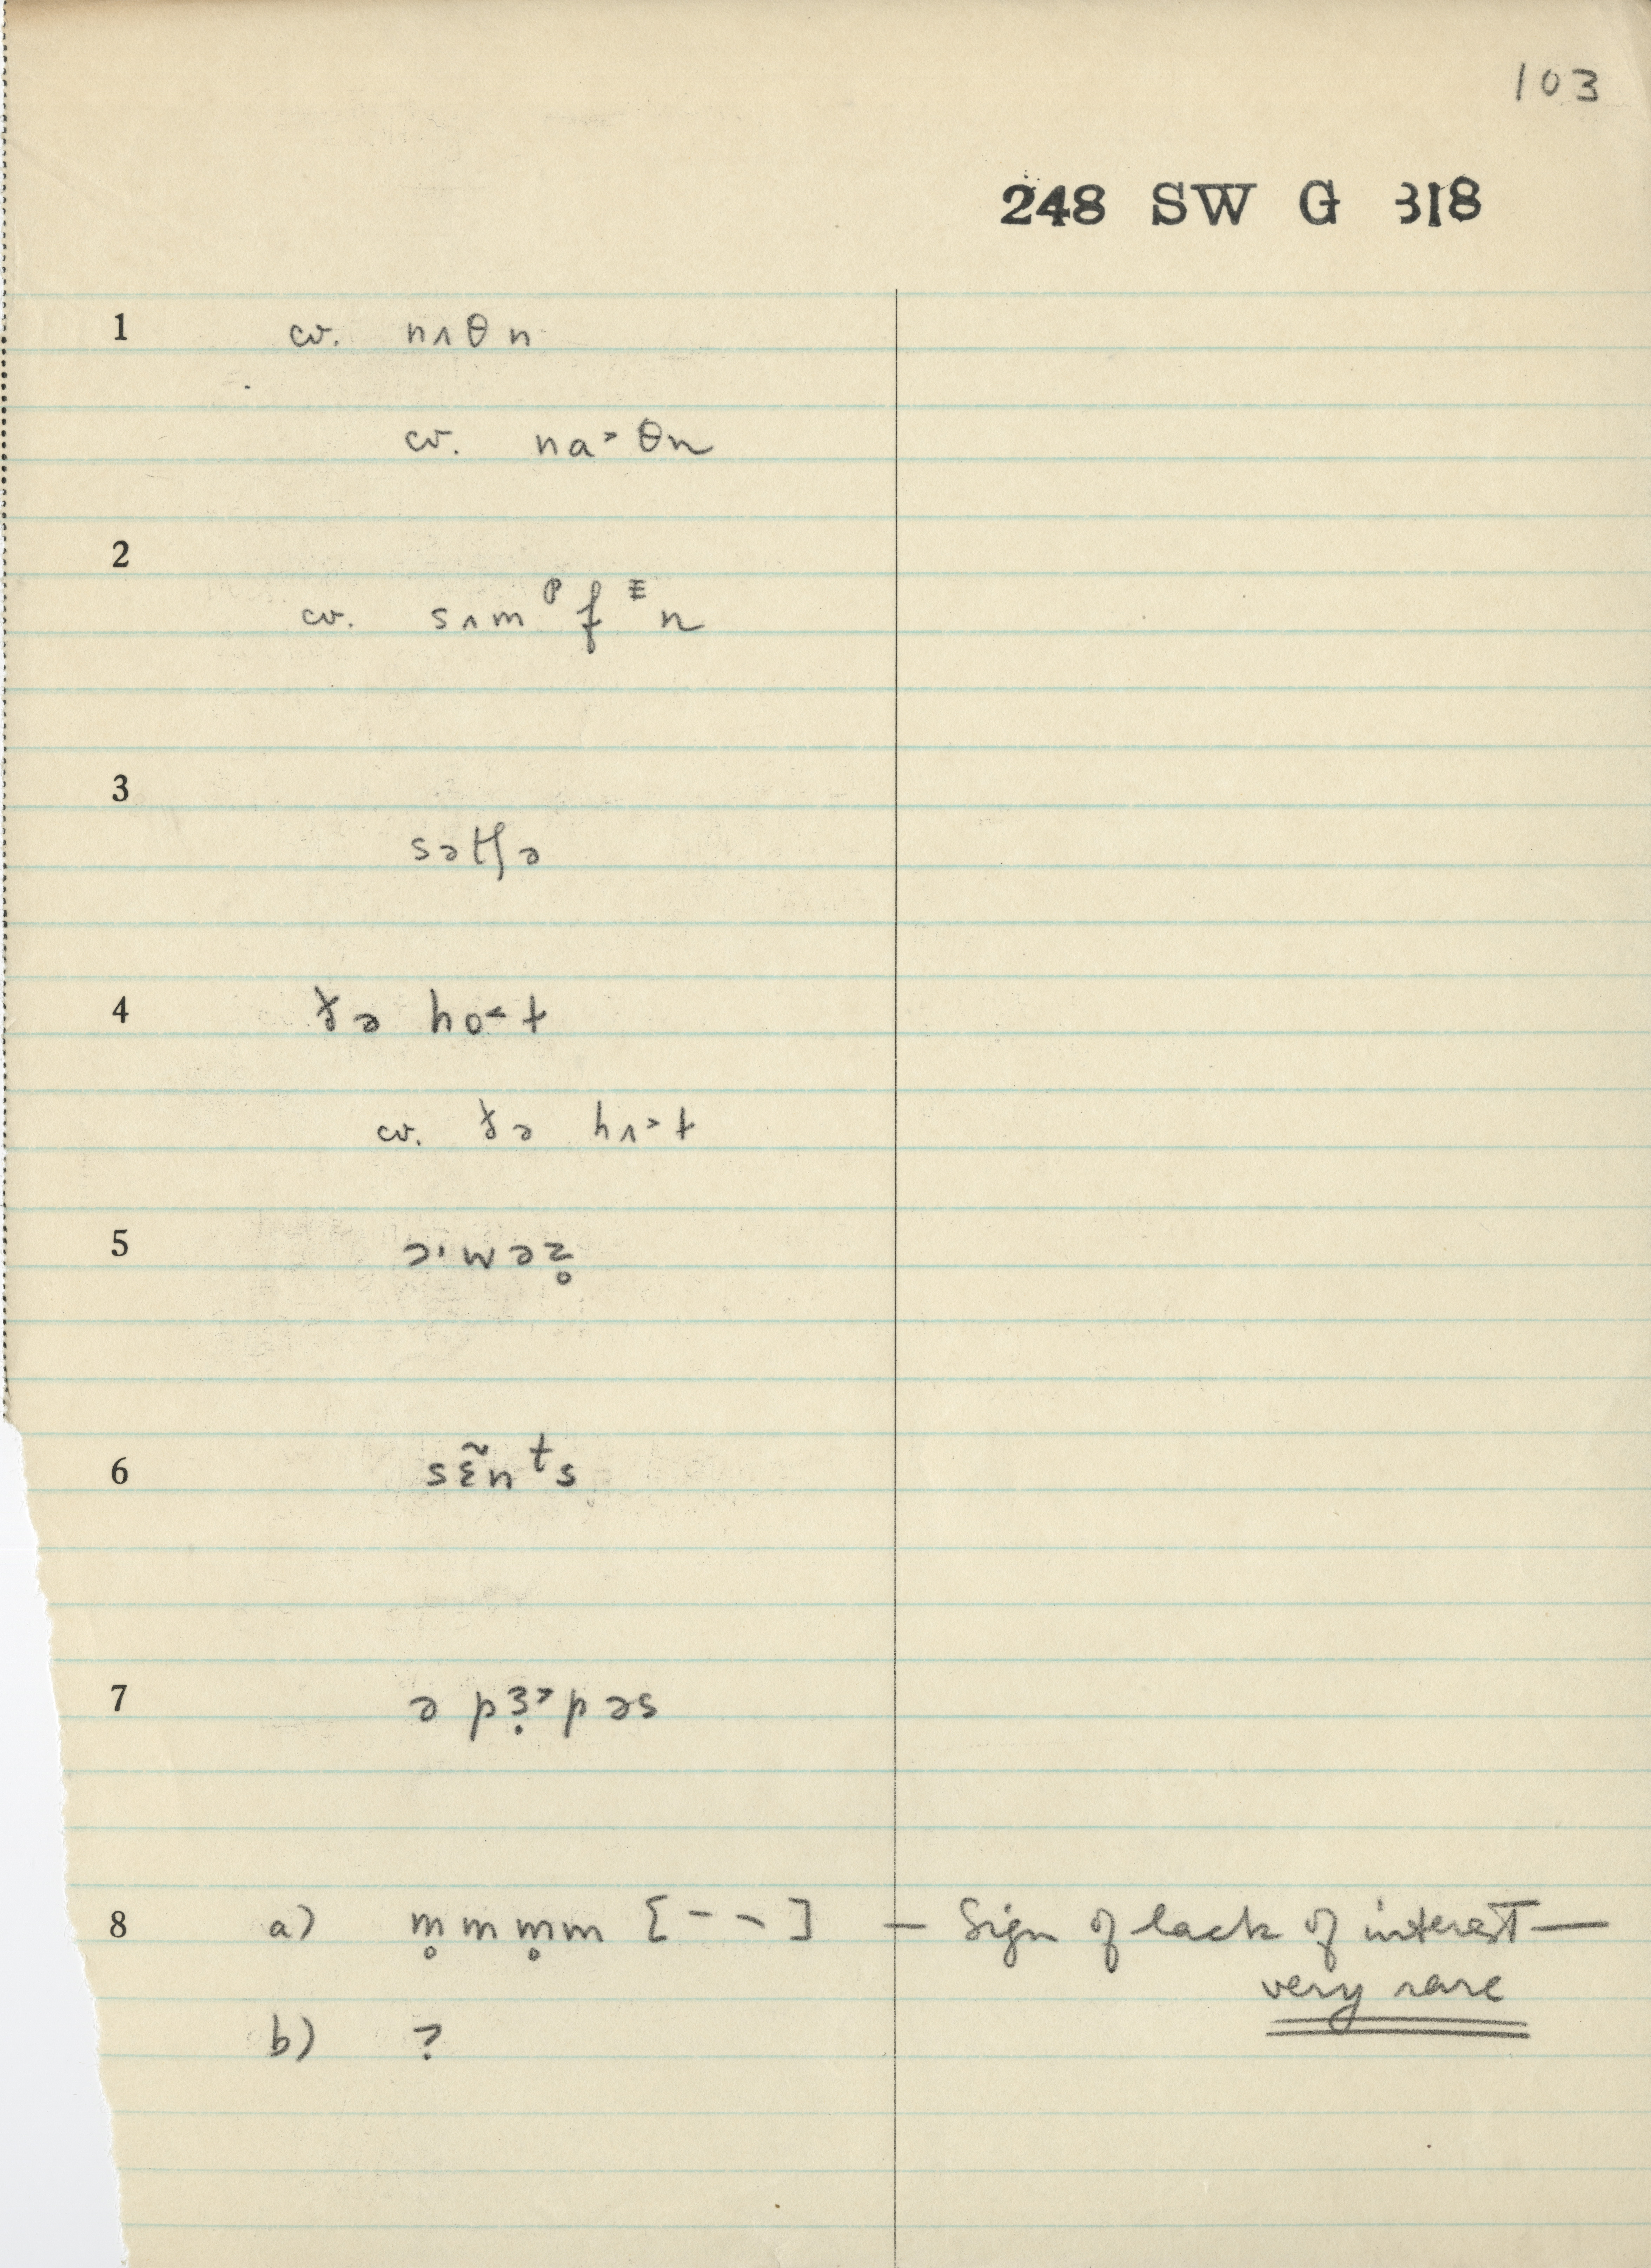 103
248 SW G 318
1 cv. nʌθn
cv. na˃θn
2
cv. sʌmᵖfᵋn
3
sətʃə
4 ðə ho˂t
cv. ðə hʌ˃t
5 ɔ·wəz̥
6 sɛ̃nᵗs
7 ə pɜ̣˃pəs
8 a) m̥mm̥m [– –] — Sign of lack of interest —
very rare
b) ?